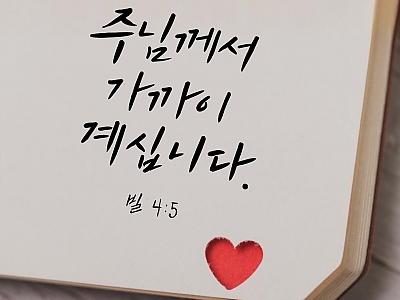 주님께서
가까이
계십니다.
빌 4:5